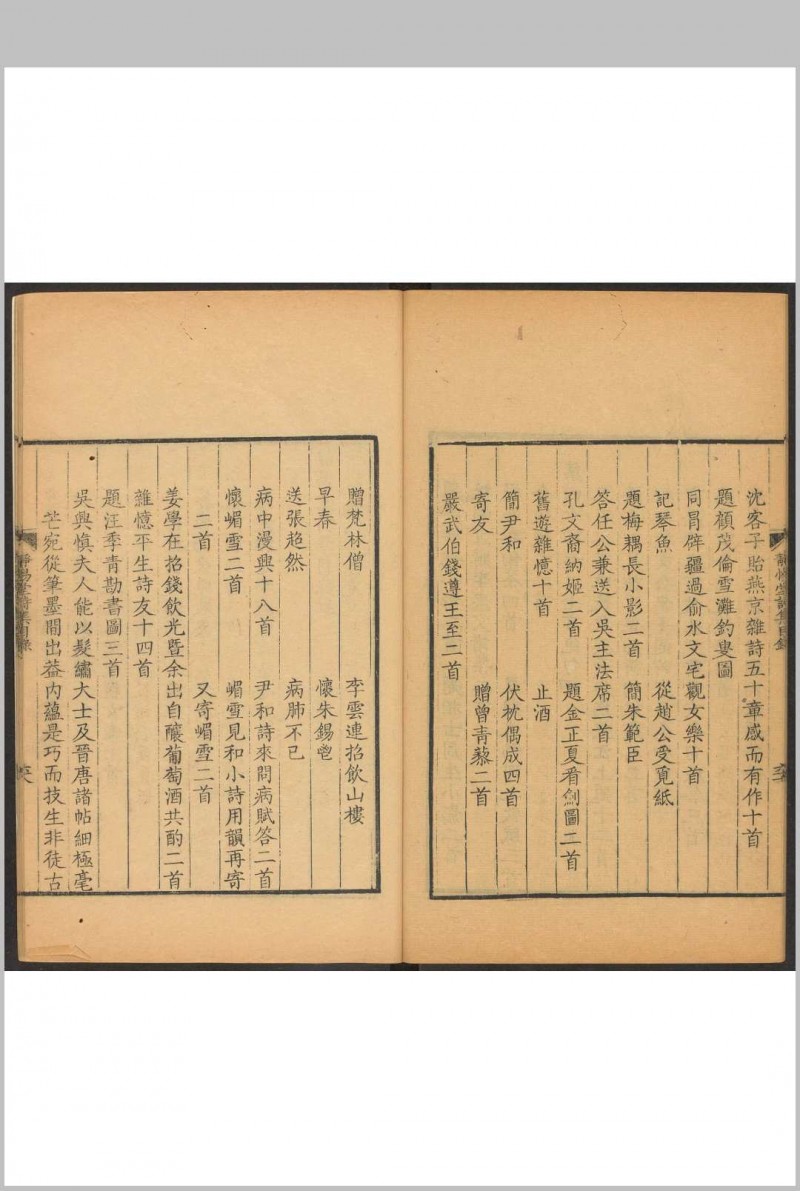 沈客子貽燕京雜詩五十章感而有作十首
題顧茂倫雪灘釣叟圖
同胥辟疆過俞水文宅觀女樂十首
記琴魚　從趙公受覓紙
題梅耦長小影二首　簡朱範臣
答任公兼送入吳主法席二首
孔文裔納姬二首　題金正夏看劍圖二首
舊遊雜憶十首　止酒
簡尹和　伏枕偶成四首
寄友　贈曾青藜二首
嚴武伯錢遵王至二首
贈梵林僧　李雲連招飲山樓
早春　懷朱錫鬯
送張趨然　病肺不已
病中漫興十八首　尹和詩來問病賦答二首
懷嵋雪二首　嵋雪見和小詩用韻再寄
二首　又寄嵋雪二首
姜學在招錢飲光暨余出自釀葡萄酒共酌二首
雜憶平生詩友十四首
題汪季青勘書圖三首
吳興慎夫人能以髮繡大士及晉唐諸帖細極毫
芒宛從筆墨間出葢內蘊是巧而技生非徒古